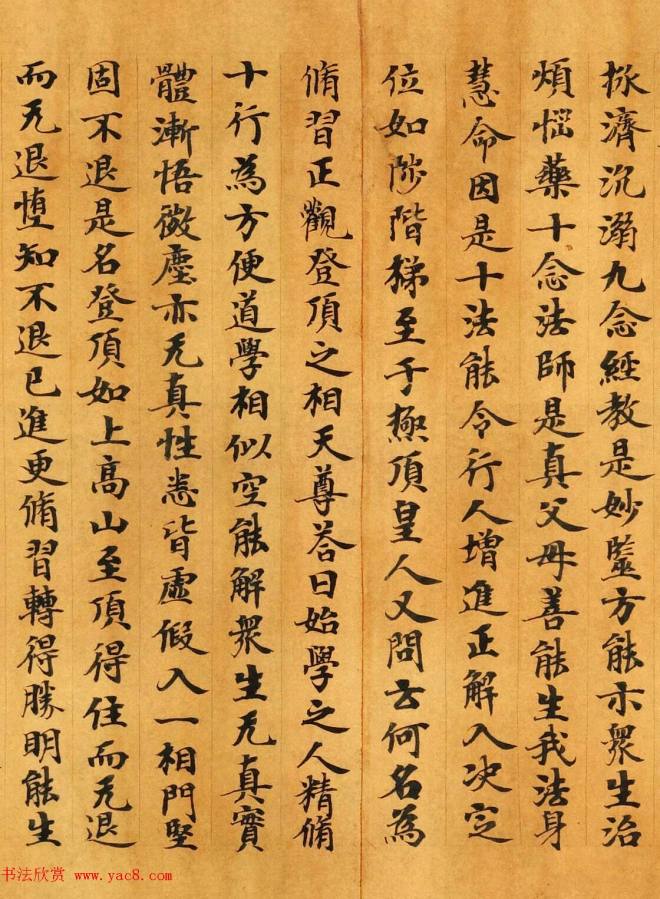 拯濟沉溺九念經教是妙蘊方能示衆生治
煩惱藥十念法師是真父母善能生我法身
慧命因是十法能令行人增進正解入决定
位如陟階梯至于極頂皇人又問云何名為
脩習正觀登頂之相天尊荅曰始學之人精脩
十行為方便道學相似空能解衆生无真實
體漸悟微塵亦无真性悉皆虛假入一相門堅
固不退是名登頂如上高山至頂得住而无退
而无退墮知不退已進更脩習轉得勝明能生
书法欣赏 www.yac8.com